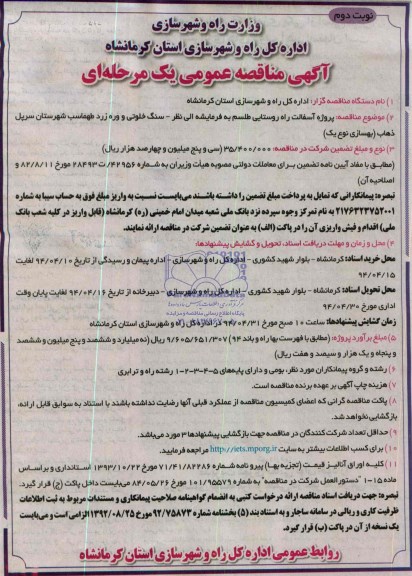 نوبت دوم
وزارت راه وشهرسازی
اداره کل راه و شهرسازی استان کرمانشاه
آگهی مناقصه عمومی یک مرحله‌ای
۱) نام دستگاه مناقصه گزار: اداره کل راه و شهرسازی استان کرمانشاه
۲) موضوع مناقصه: پروژه آسفالت راه روستایی طلسم به فرمایشه الی نظر – سنگ خلوتی و وره زرد طهماسب شهرستان سرپل
ذهاب (بهسازی نوع یک)
۳) نوع و مبلغ تضمین شرکت در مناقصه: ۳۵/۴۰۰/۰۰۰ (سی و پنج میلیون و چهارصد هزار ریال)
(مطابق با مفاد آیین نامه تضمین برای معاملات دولتی مصوبه هیأت وزیران به شماره ۴۲۹۵۶/ت ۲۸۴۹۳ مورخ ۸۲/۸/۱۱ و
اصلاحیه آن)
تبصره: پیمانکارانی که تمایل به پرداخت مبلغ تضمین را داشته باشند می‌بایست نسبت به واریز مبلغ فوق به حساب سیبا به شماره
۲۱۷۶۴۳۳۷۵۲۰۰۱ به نام تمرکز وجوه سپرده نزد بانک ملی شعبه میدان امام خمینی (ره) کرمانشاه (قابل واریز در کلیه شعب بانک
ملی) اقدام و فیش واریزی آن را در پاکت (الف) به عنوان تضمین شرکت در مناقصه ارائه نمایند.
۴) محل و زمان و مهلت دریافت اسناد، تحویل و گشایش پیشنهادها:
محل خرید اسناد: کرمانشاه – بلوار شهید کشوری – اداره کل راه و شهرسازی – اداره پیمان و رسیدگی از تاریخ ۹۴/۰۴/۱۰ لغایت
۹۴/۰۴/۱۵
محل تحویل اسناد: کرمانشاه – بلوار شهید کشوری – اداره کل راه و شهرسازی – دبیرخانه از تاریخ ۹۴/۰۴/۱۶ لغایت پایان وقت
اداری مورخ ۹۴/۰۴/۳۰
زمان گشایش پیشنهادها: ساعت ۱۰ صبح مورخ ۹۴/۰۴/۳۱ در اداره کل راه و شهرسازی استان کرمانشاه
۵) مبلغ برآورد پروژه: (مطابق با فهرست بها راه و باند ۹۴) ۹/۶۰۵/۶۵۱/۳۰۷ ریال (نه میلیارد و ششصد و پنج میلیون و ششصد
و پنجاه و یک هزار و سیصد و هفت ریال)
۶) رشته و گروه پیمانکاران مورد نظر: بومی و دارای پایه‌های ۵-۴-۳-۲-۱ رشته راه و ترابری
۷) هزینه چاپ آگهی بر عهده برنده مناقصه است.
۸) پاکت مناقصه گرانی که اعضای کمیسیون مناقصه از عملکرد قبلی آنها رضایت نداشته باشند با استناد به سوابق قابل ارائه،
بازگشایی نخواهد شد.
۹) حداقل تعداد شرکت کنندگان در مناقصه جهت بازگشایی پیشنهادها ۳ مورد می‌باشد.
۱۰) برای کسب اطلاعات بیشتر به سایت http://iets.mporg.ir مراجعه فرمایید.
۱۱) کلیه اوراق آنالیز قیمت (تجزیه بها) پیرو نامه شماره ۷۱/۴۱/۸۲۲۸۶ مورخ ۱۳۹۳/۱۰/۲۲ استانداری و براساس
ماده ۱۵-۱ "دستورالعمل شرکت در مناقصه" به شماره ۱۰۱/۹۵۵۷۹ مورخ ۸۴/۰۵/۲۶ می‌بایست داخل پاکت (ج) قرار گیرد.
تبصره: جهت دریافت اسناد مناقصه ارائه درخواست کتبی به انضمام گواهینامه صلاحیت پیمانکاری و مستندات مربوط به ثبت اطلاعات
ظرفیت کاری و ریالی در سامانه ساجار و به استناد بند (۵) بخشنامه شماره ۹۲/۷۵۸۷۳ مورخ ۱۳۹۲/۰۸/۲۵ الزامی است و می‌بایست
یک نسخه از آن در پاکت (ب) قرار گیرد.
روابط عمومی اداره کل راه و شهرسازی استان کرمانشاه